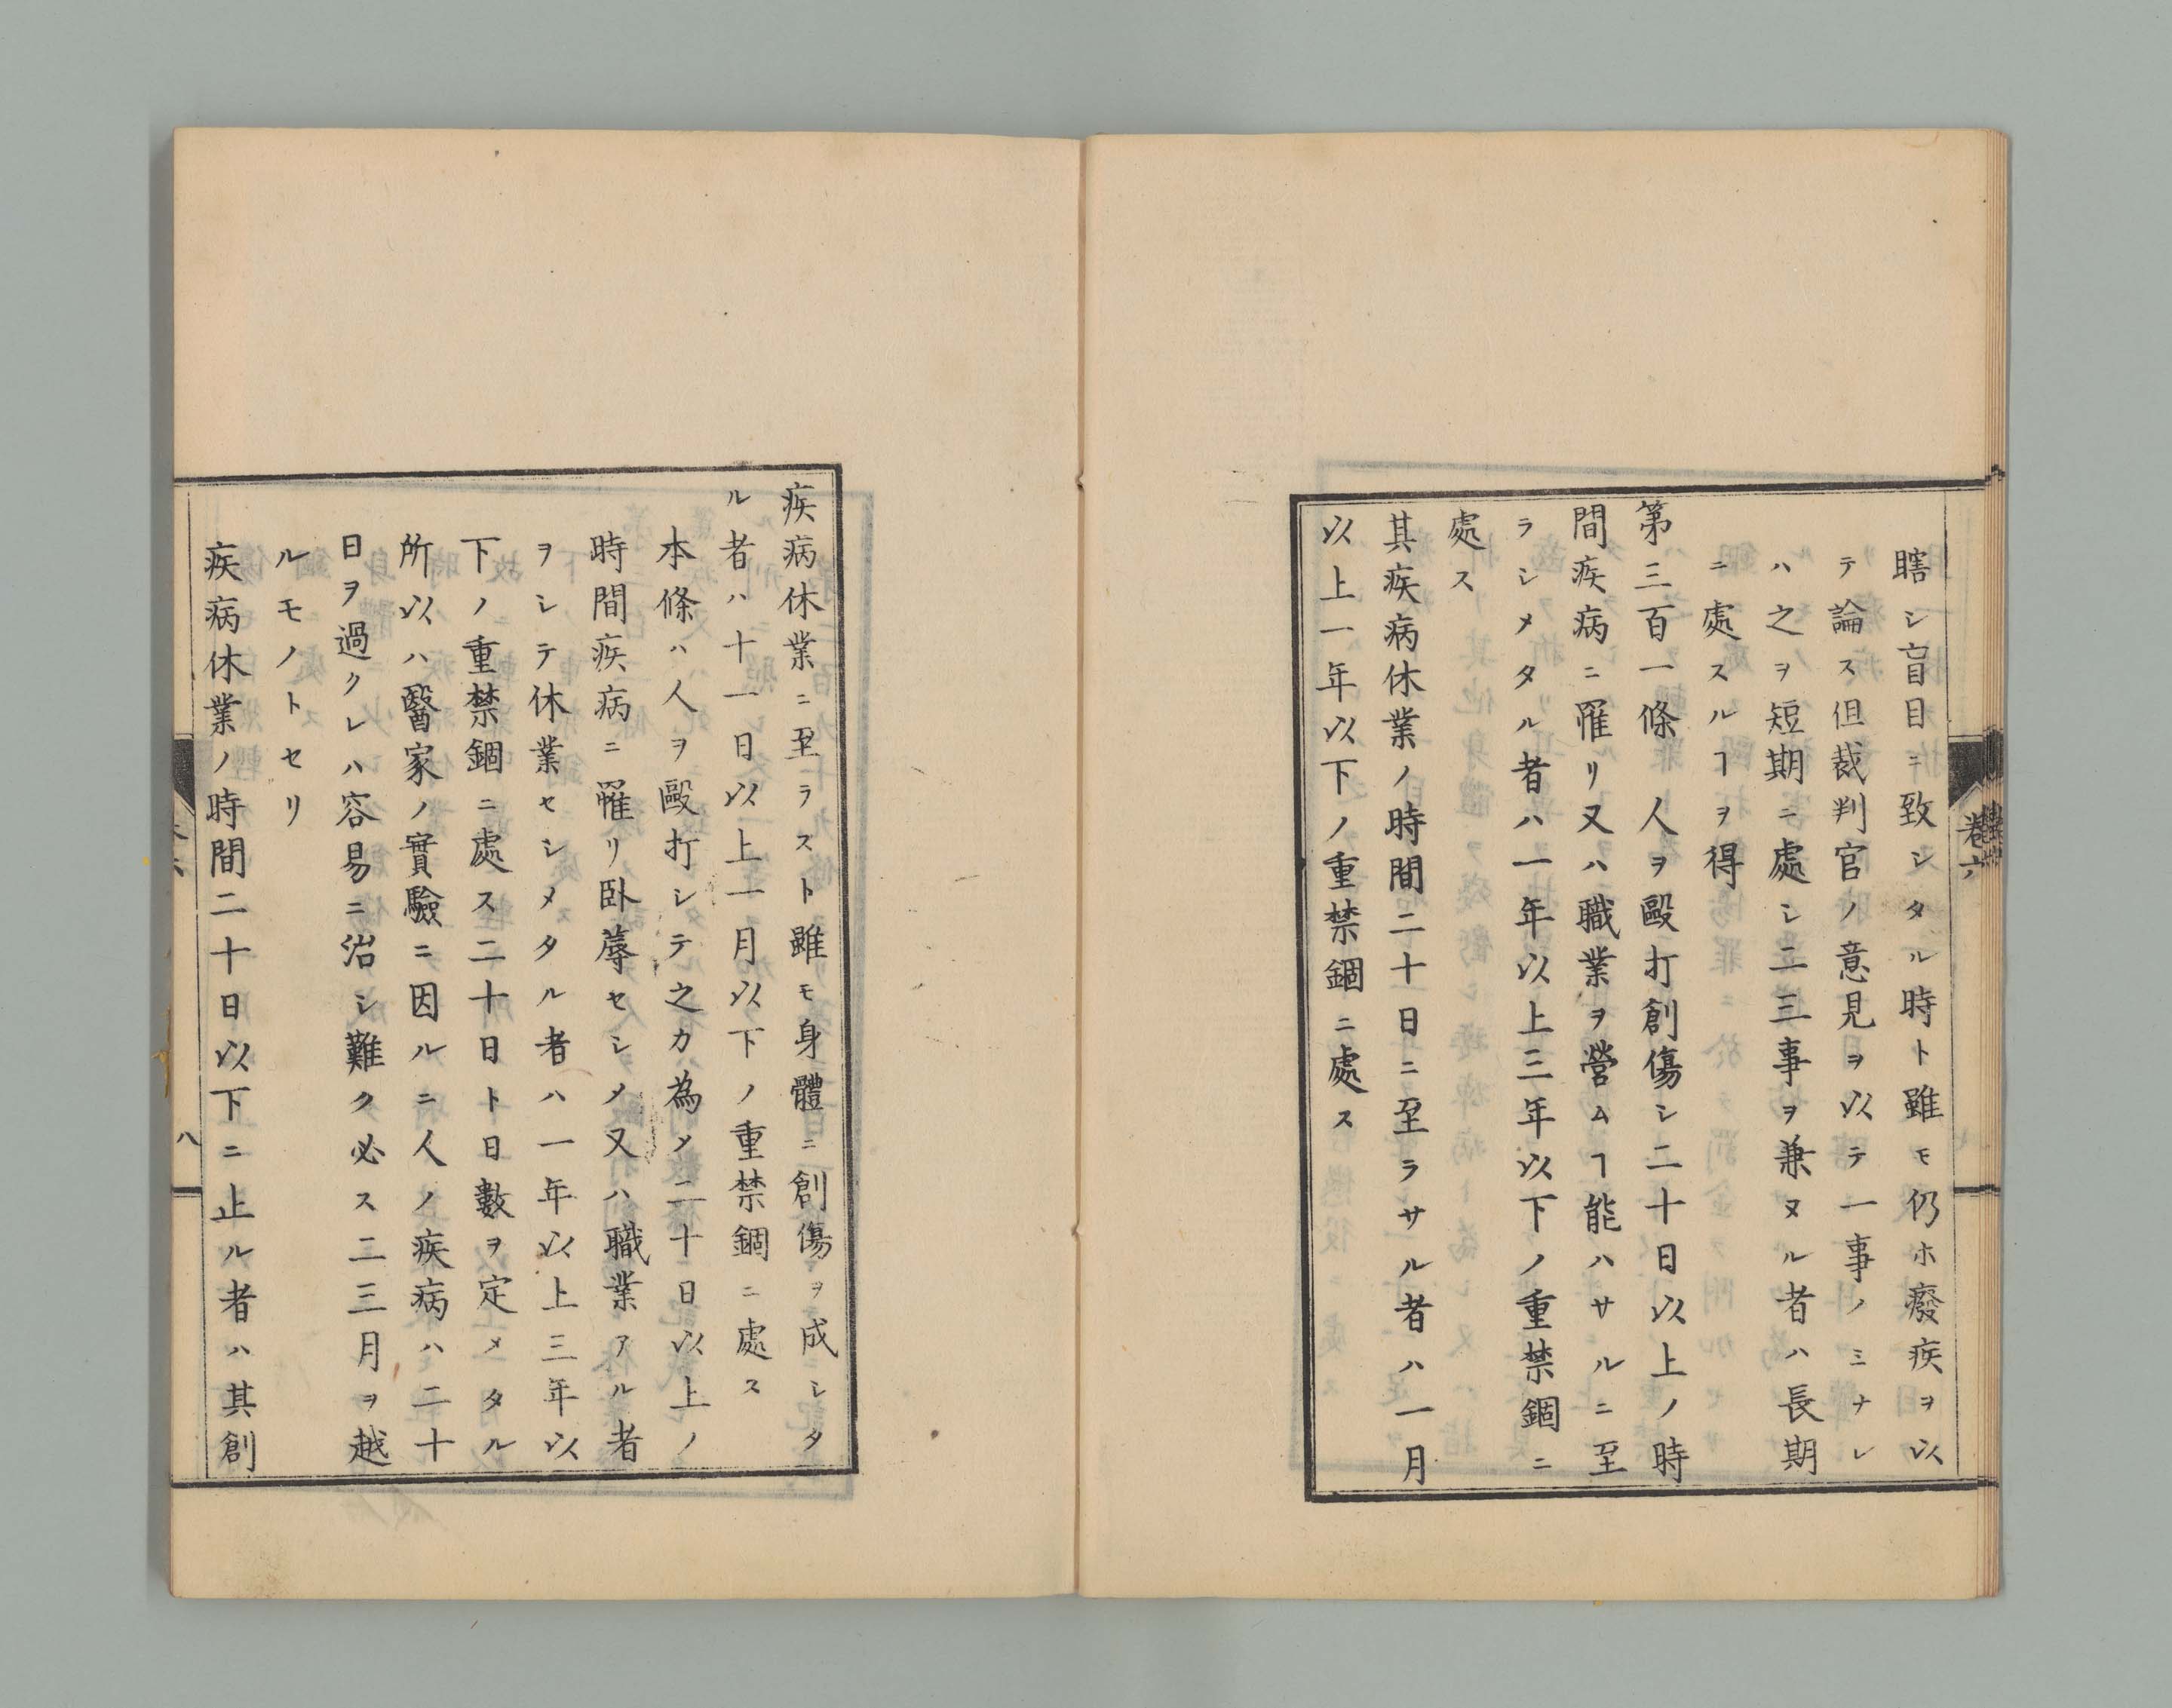 瞎シ盲目ニ致シタル時ト雖モ仍ホ癈疾ヲ以
テ論ス但裁判官ノ意見ヲ以テ一事ノミナレ
ハ之ヲ短期ニ處シ二三事ヲ兼ヌル者ハ長期
ニ處スルヿヲ得
第三百一條 人ヲ毆打創傷シ二十日以上ノ時
間疾病ニ罹リ又ハ職業ヲ營ムヿ能ハサルニ至
ラシメタル者ハ一年以上三年以下ノ重禁錮ニ
處ス
其疾病休業ノ時間二十日ニ至ラサル者ハ一月
以上一年以下ノ重禁錮ニ處ス
卷六
疾病休業ニ至ラスト雖モ身體ニ創傷ヲ成シタ
ル者ハ十一日以上一月以下ノ重禁錮ニ處ス
本條ハ人ヲ毆打シテ之カ為メ二十日以上ノ
時間疾病ニ罹リ卧蓐セシメ又ハ職業アル者
ヲシテ休業セシメタル者ハ一年以上三年以
下ノ重禁錮ニ處ス二十日ト日數ヲ定メタル
所以ハ醫家ノ實驗ニ因ルニ人ノ疾病ハ二十
日ヲ過クレハ容易ニ治シ難ク必ス二三月ヲ越
ルモノトセリ
疾病休業ノ時間二十日以下ニ止ル者ハ其創
八